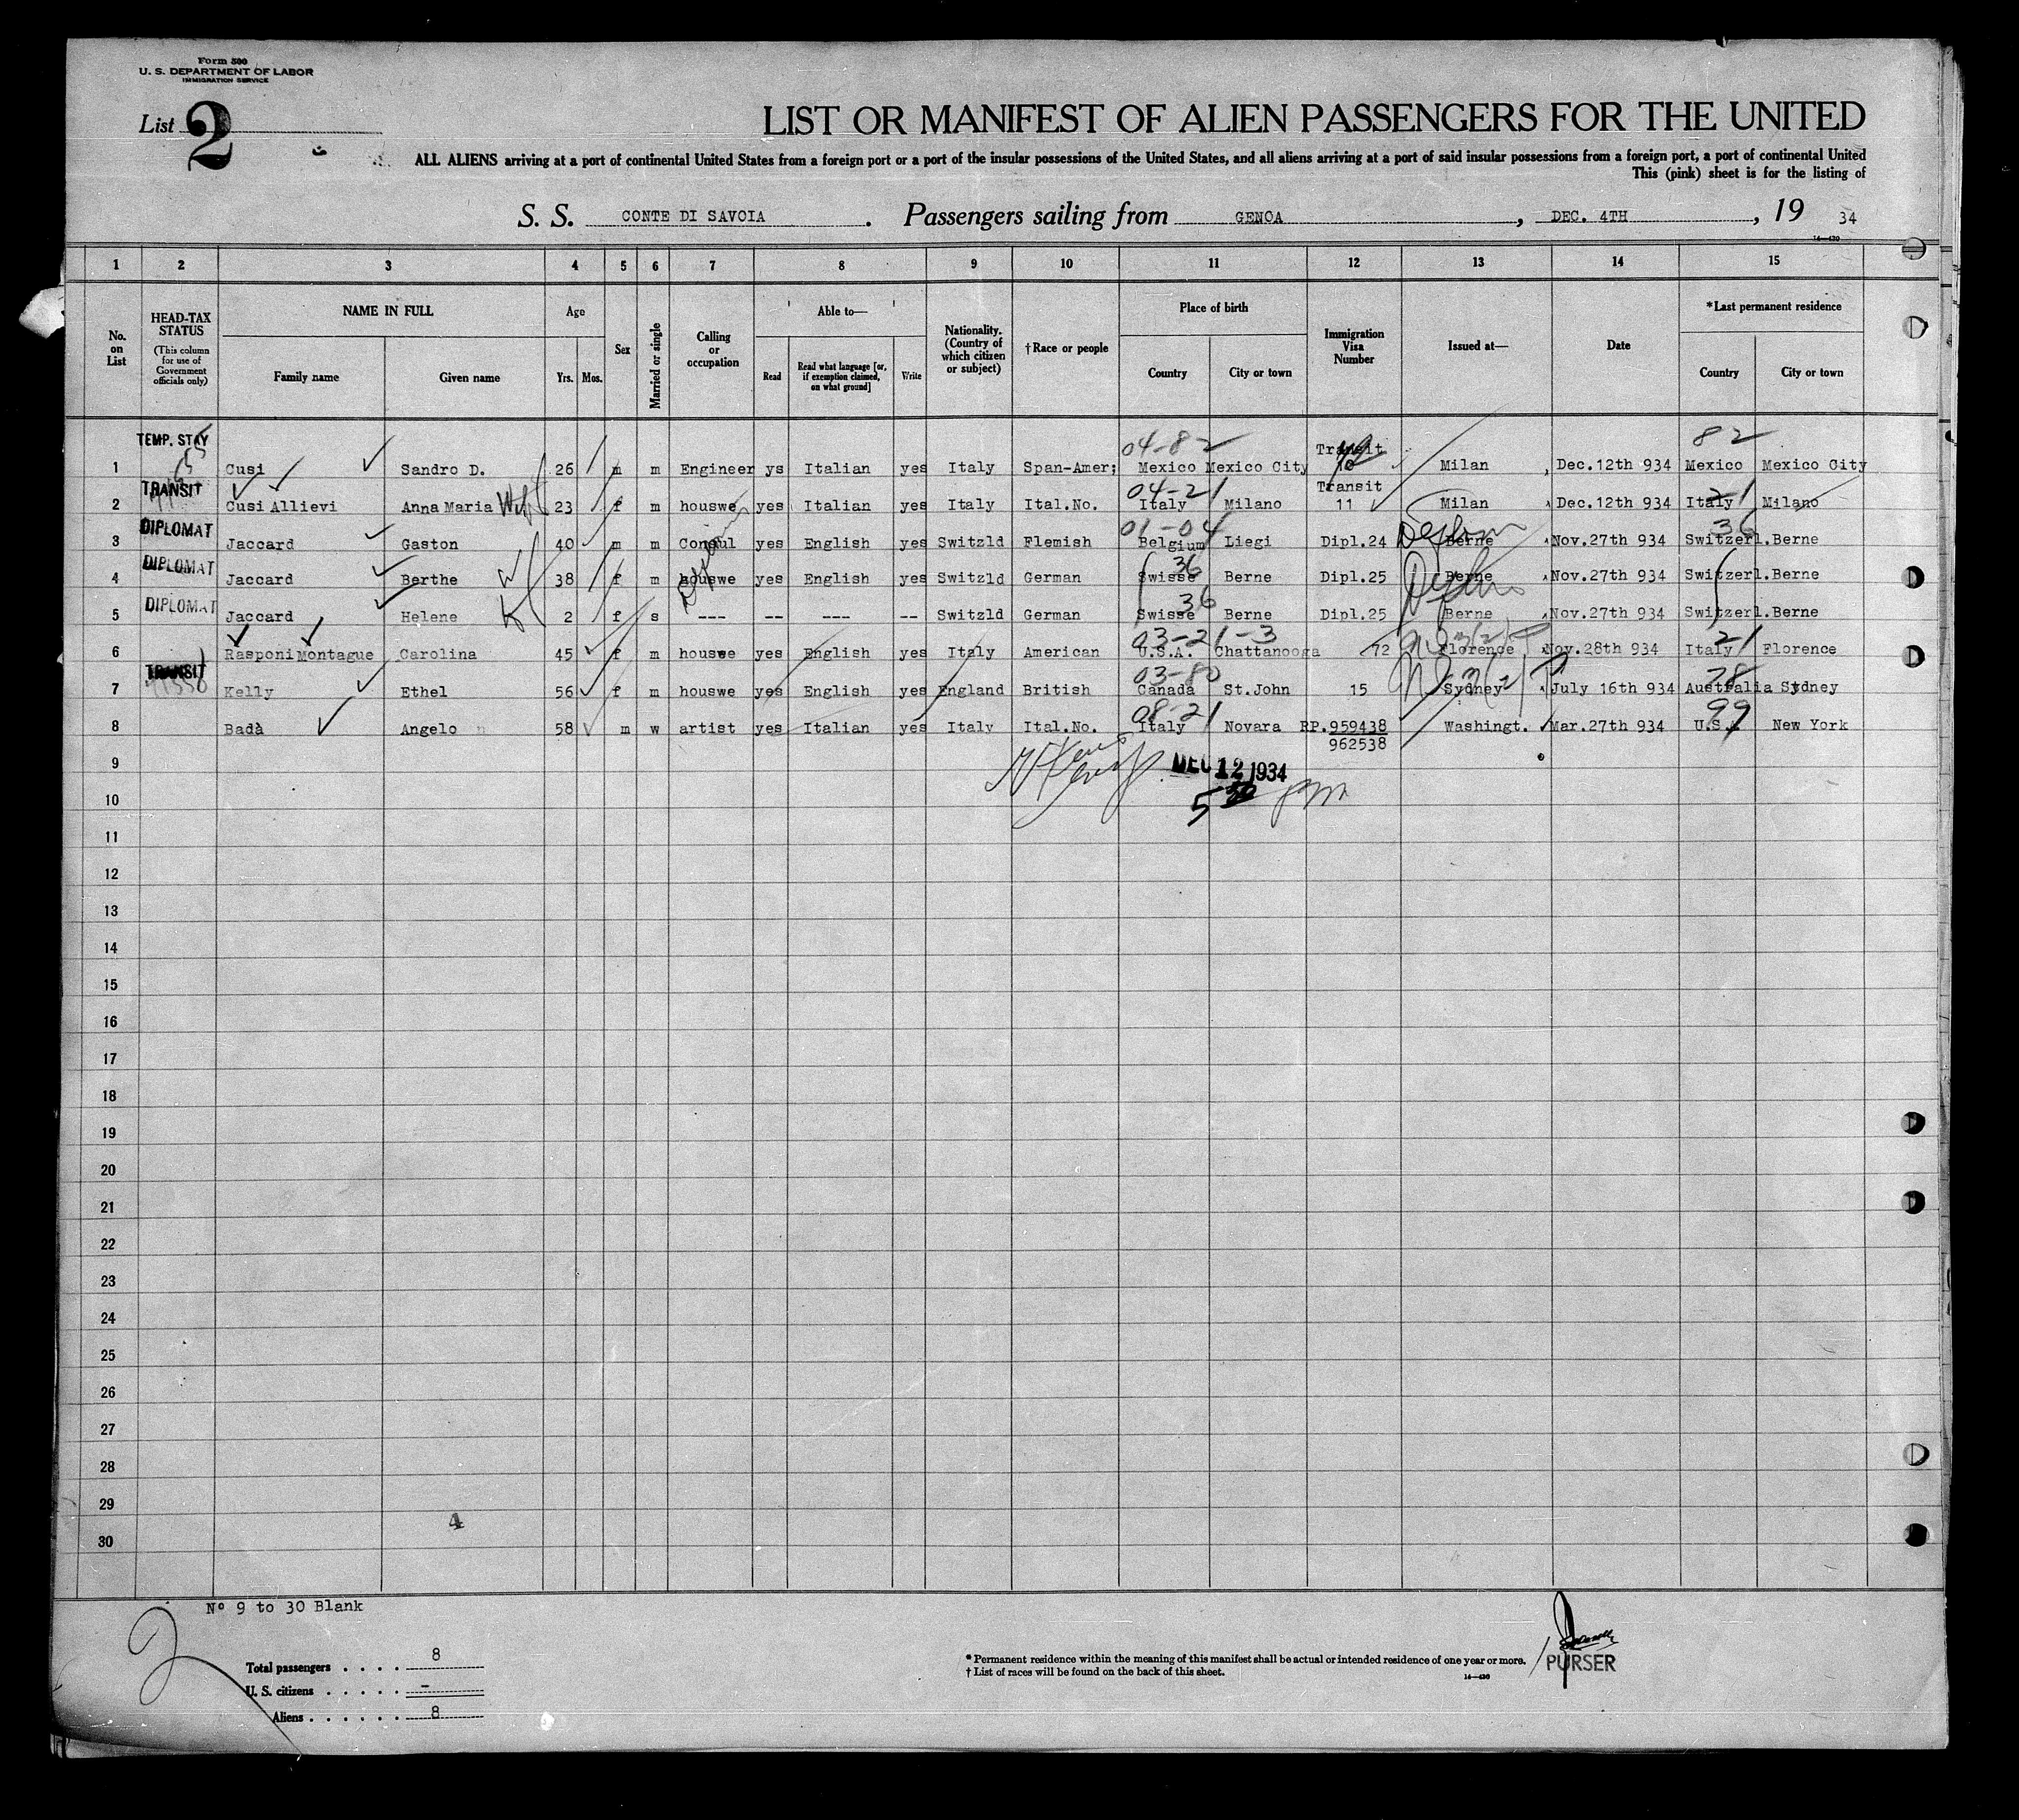 Form 500
U. S. DEPARTMENT OF LABOR
IMMIGRATION SERVICE
List 2
LIST OR MANIFEST OF ALIEN PASSENGERS FOR THE UNITED
ALL ALIENS arriving at a port of continental United States from a foreign port or a port of the insular possessions of the United States, and all aliens arriving at a port of said insular possessions from a foreign port, a port of continental United
This (pink) sheet is for the listing of
S. S. CONTE DI SAVOIA. Passengers sailing from GENOA, DEC. 4TH, 19 34
14—420
1 2 3 4 5 6 7 8 9 10 11 12 13 14 15
No. on List
HEAD-TAX STATUS
(This column for use of Government officials only)
NAME IN FULL
Family name
Given name
Age
Yrs. Mos.
Sex
Married or single
Calling or occupation
Able to—
Read
Read what language [or, if exemption claimed, on what ground]
Write
Nationality. (Country of which citizen or subject)
†Race or people
Place of birth
Country
City or town
Immigration Visa Number
Issued at—
Date
*Last permanent residence
Country
City or town
TEMP. STAY 04-82 Transit 82
1 Cusi Sandro D. 26 m m Engineer ys Italian yes Italy Span-Amer; Mexico Mexico City 10 Milan Dec.12th 934 Mexico Mexico City
TRANSIT 04-21 Transit 21
2 Cusi Allievi Anna Maria Wf 23 f m houswe yes Italian yes Italy Ital.No. Italy Milano 11 Milan Dec.12th 934 Italy Milano
DIPLOMAT 01-04 36
3 Jaccard Gaston 40 m m Consul yes English yes Switzld Flemish Belgium Liegi Dipl.24 Berne Nov.27th 934 Switzerl. Berne
DIPLOMAT 36
4 Jaccard Berthe W 38 f m houswe yes English yes Switzld German Swisse Berne Dipl.25 Berne Nov.27th 934 Switzerl. Berne
DIPLOMAT 36
5 Jaccard Helene 2 f s --- -- --- -- Switzld German Swisse Berne Dipl.25 Berne Nov.27th 934 Switzerl. Berne
03-21-3 3(2) 21
6 Rasponi Montague Carolina 45 f m houswe yes English yes Italy American U.S.A. Chattanooga 72 Florence Nov.28th 934 Italy Florence
TRANSIT 03-80 3(2) 78
7 Kelly Ethel 56 f m houswe yes English yes England British Canada St.John 15 Sydney July 16th 934 Australia Sydney
08-21 99
8 Badà Angelo 58 m w artist yes Italian yes Italy Ital.No. Italy Novara RP.959438 Washingt. Mar.27th 934 U.S. New York
962538
9
DEC 12 1934
10
5 30 pm
11
12
13
14
15
16
17
18
19
20
21
22
23
24
25
26
27
28
29
4
30
Nº 9 to 30 Blank
2
Total passengers . . . . 8
U. S. citizens . . . . . -
Aliens . . . . . . 8
* Permanent residence within the meaning of this manifest shall be actual or intended residence of one year or more.
† List of races will be found on the back of this sheet.
14—420
PURSER